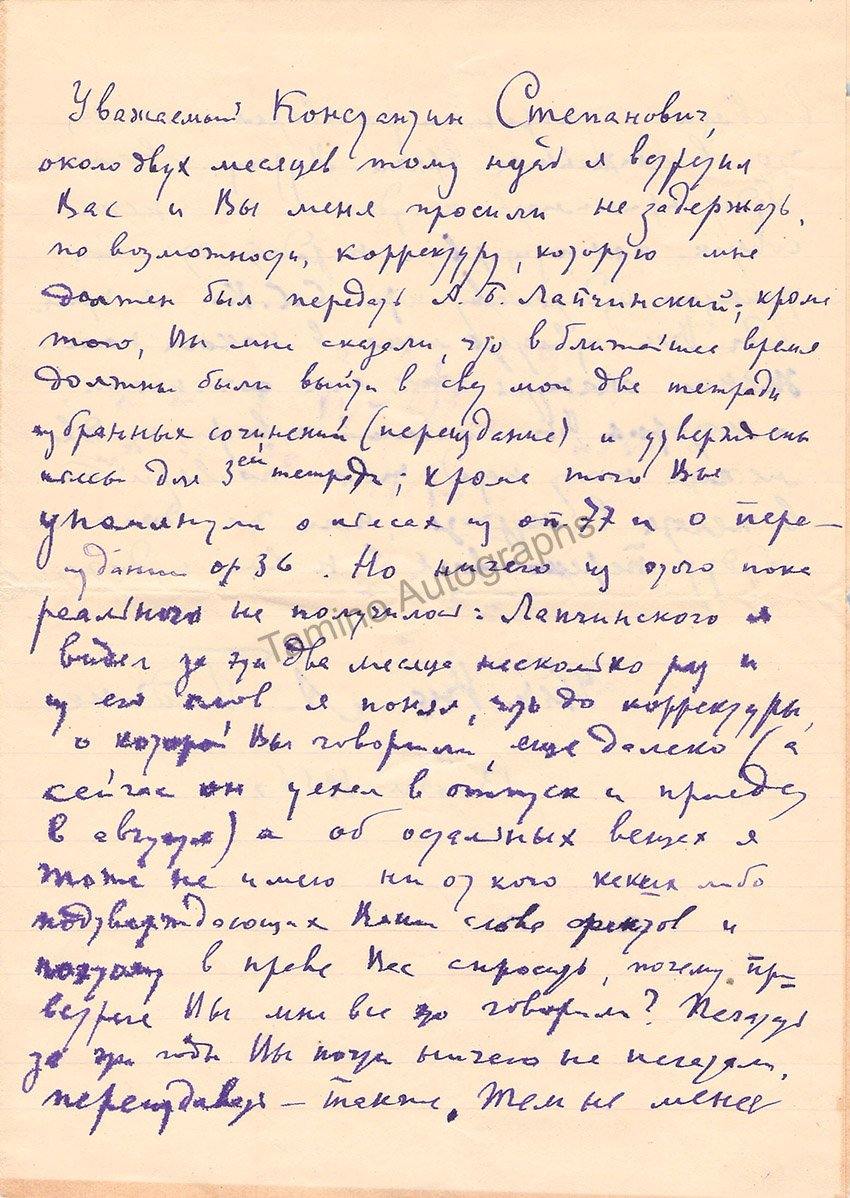 Уважаемый Константин Степанович,
около двух месяцев тому назад я встретил
Вас и Вы меня просили не задержать,
по возможности, корректуру, которую мне
должен был передать А. Б. Лапчинский; кроме
того, Вы мне сказали, что в ближайшее время
должны были выйти в свет мои две тетради
избранных сочинений (переиздание) и утверждены
пьесы для 3ей тетради; кроме того Вы
упомянули о пьесах из оп 77 и о пере-
издании ор 36. Но ничего из этого пока
реального не получилось: Лапчинского я
видел за эти два месяца несколько раз и
из его слов я понял, что до корректуры,
о которой Вы говорили, еще далеко (а
сейчас он уехал в отпуск и приедет
в августе) а об остальных вещах я
тоже не имею ни от кого каких либо
подтверждающих Ваши слова фактов и
поэтому в праве Вас спросить, почему при
встрече Вы мне все это говорили? Печатать
за эти годы Вы почти ничего не печатали,
переиздавать – также. Тем не менее
Tamino Autographs